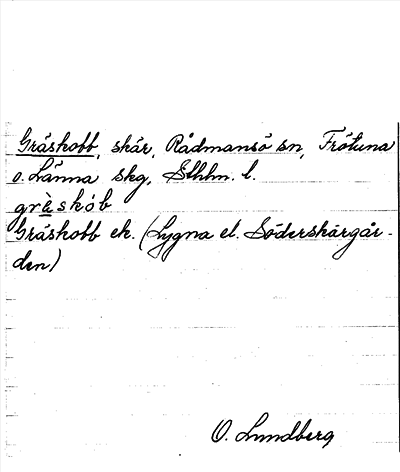 Gråskobb, skär, Rådmansö sn, Frötuna
o. Länna skg, Sthlm. l.
grèskób
Gråskobb ek. (Lygna el. Söderskärgår-
den)
O. Lundberg